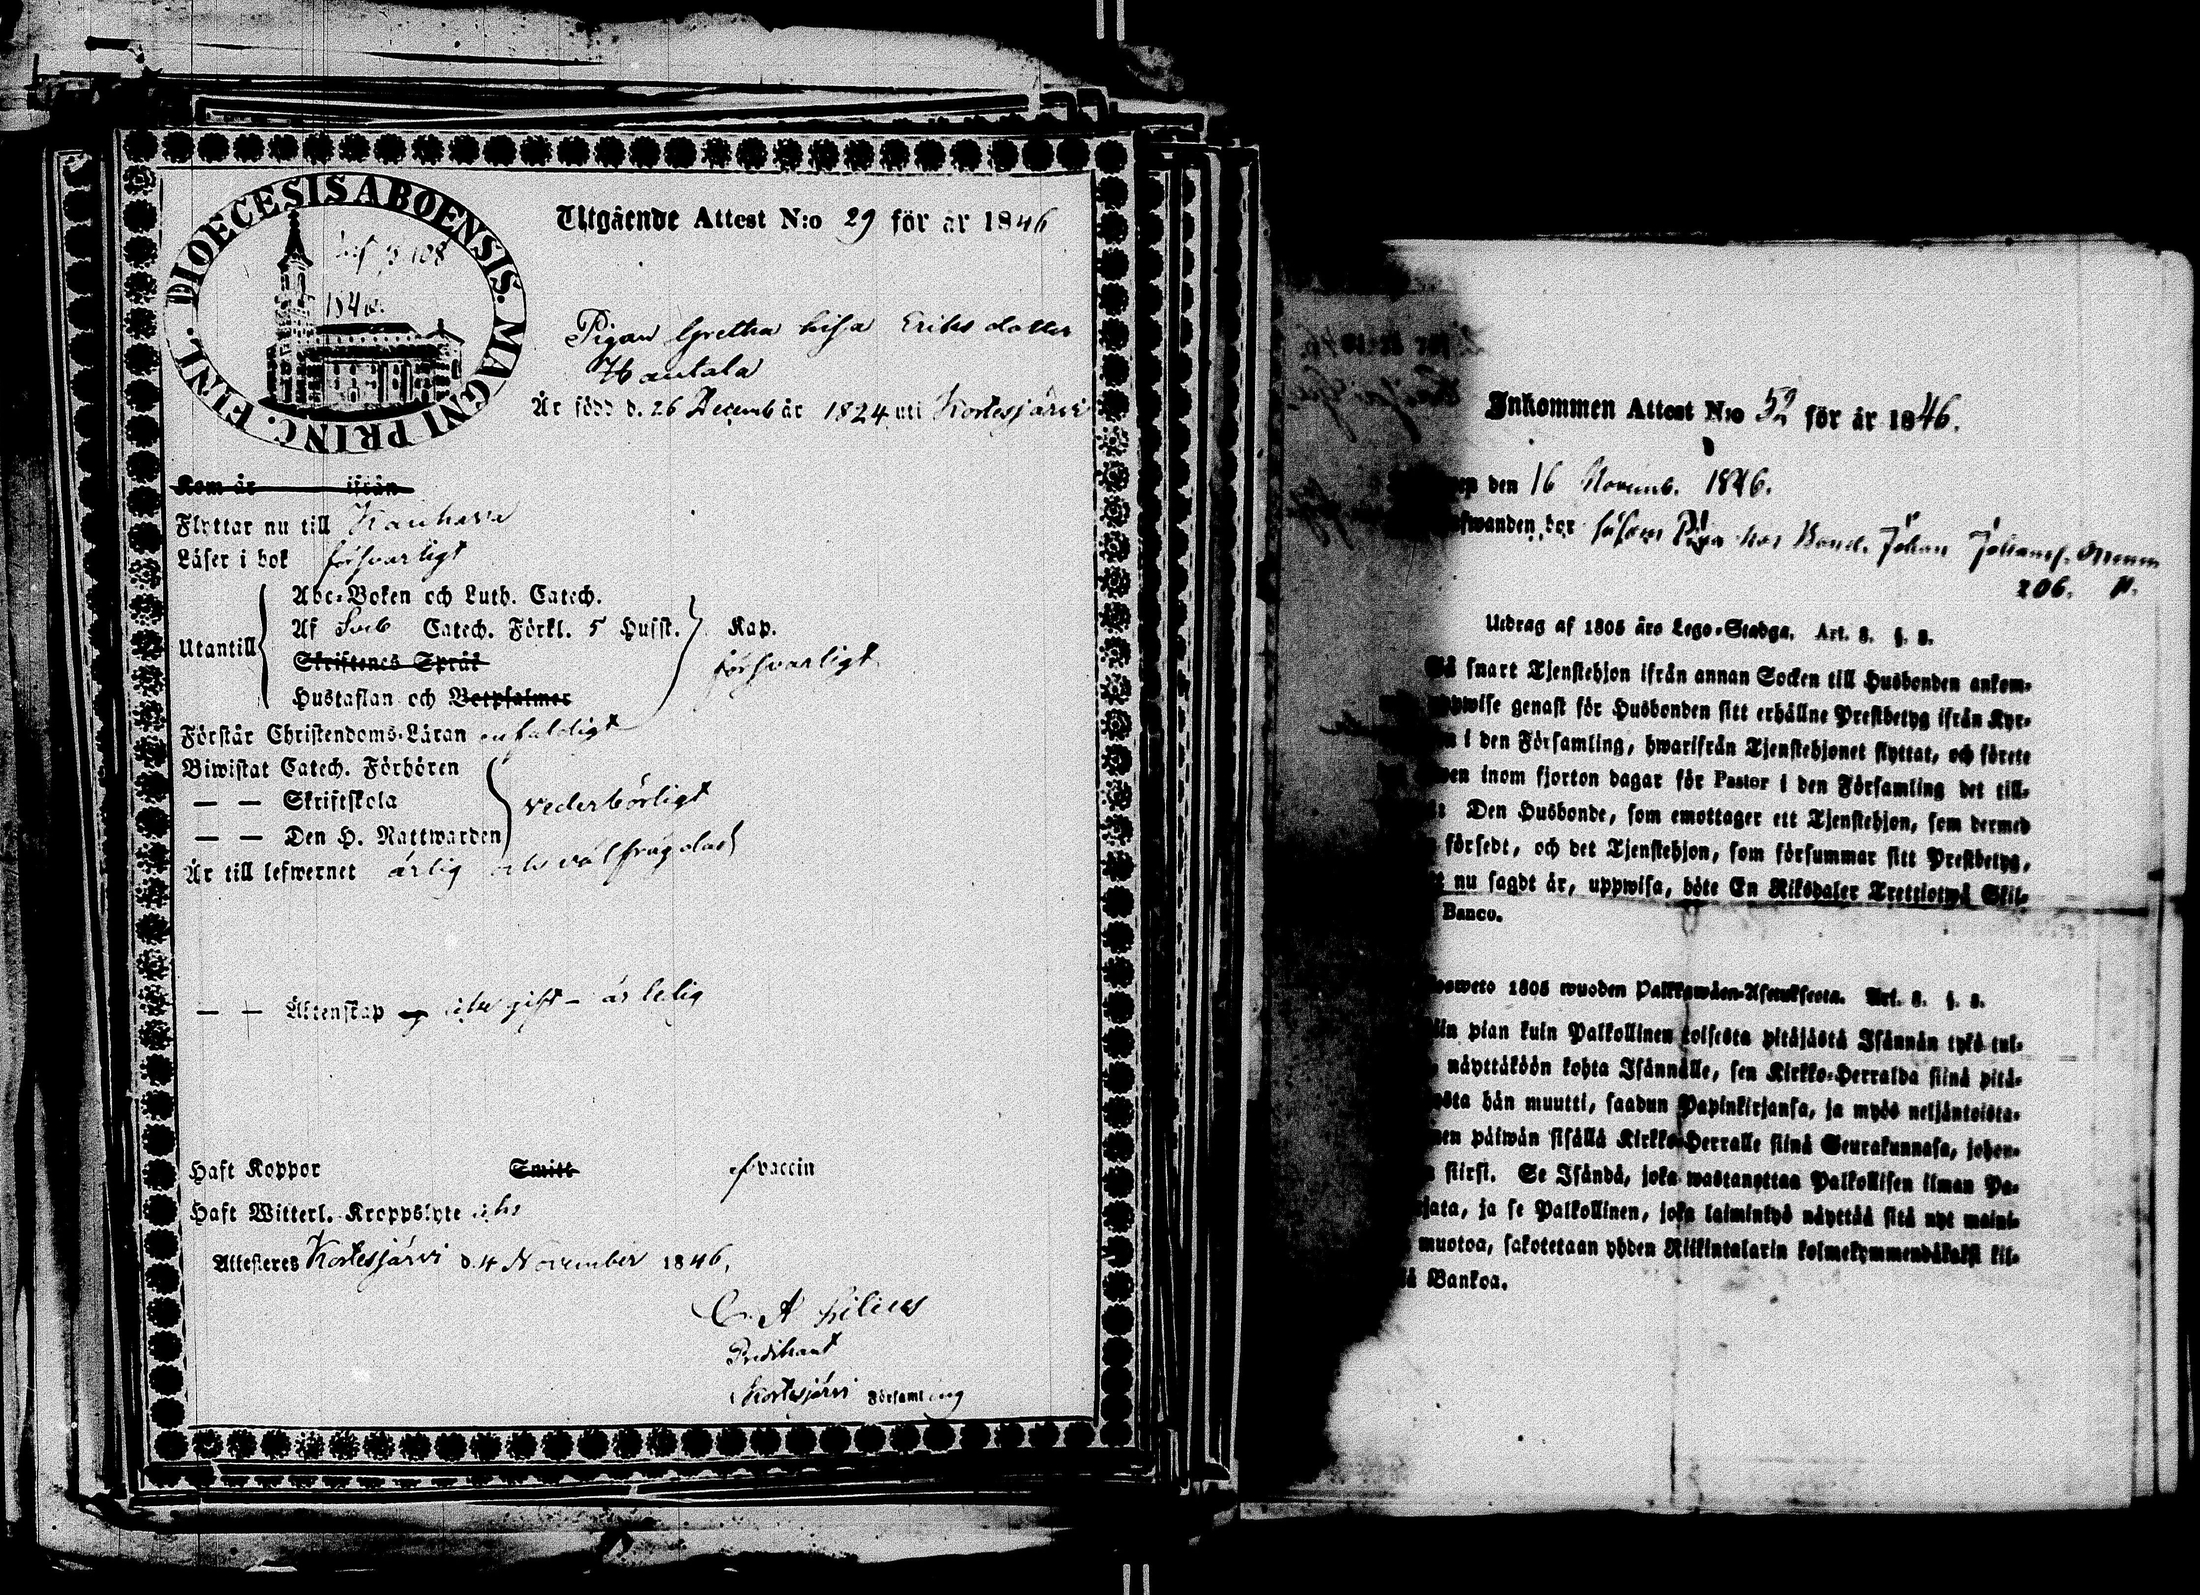 DIOECESIS ABOENSIS. MAGNI PRINC. FINL.
108
1846.
Utgående Attest N:o 29 för år 1846
Pigan Gretha Lisa Eriksdotter
Hautala
Är född d. 26 December 1824 uti Kortesjärvi
Kom år ifrån
Flyttar nu till Kauhava
Läser i bok försvarligt
Utantill
Abc-Boken och Luth. Catech.
Af Sveb Catech. Förkl. 5 Husst. Kap.
Skriftenes Språk försvarligt
Hustaflan och Botpsalmer
Förstår Christendoms-Läran enfaldigt
Biwistat Catech. Förhören
— — Skriftskola vederbörligt
— — Den H. Nattwarden
Är till lefwernet ärlig och välfrägdad
— — Äktenskap icke gift – är ledig
Haft Koppor Smitt vaccin
Haft Witterl. Kroppslyte
Attesteres Kortesjärvi d. 4 November 1846,
C. A.
Predikant
Kortesjärvi Församling
Inkommen Attest N:o 52 för år 1846.
den 16 Novemb. 1846.
såsom Piga hos Bond. Johan Johanss.
206. p.
Utdrag af 1805 års Lego-Stadga. Art. 8. §. 8.
Så snart Tjenstehjon ifrån annan Socken till Husbonden ankom-
uppwise genast för Husbonden sitt erhållne Prestbetyg ifrån Kyr-
i den Församling, hwarifrån Tjenstehjonet flyttat, och förete
inom fjorton dagar för Pastor i den Församling det till-
Den Husbonde, som emottager ett Tjenstehjon, som dermed
försedt, och det Tjenstehjon, som försummar sitt Prestbetyg,
nu sagdt är, uppwisa, böte En Riksdaler Trettiotwå Skil-
Banco.
1805 wuoden Palkkawäen-Asetuksesta. Art. 8. §. 8.
pian kuin Palkollinen toisesta pitäjästä Isännän tykö tul-
näyttäköön kohta Isännälle, sen Kirkko-Herralda siinä pitä-
hän muutti, saadun Papinkirjansa, ja myös neljäntoista-
päiwän sisällä Kirkko-Herralle siinä Seurakunnasa, johon-
siirsi. Se Isändä, joka wastanottaa Palkollisen ilman Pa-
ja se Palkollinen, joka laiminlyö näyttää sitä nyt maini-
muotoa, sakotetaan yhden Riikintalarin kolmekymmendäkaksi kil-
Bankoa.